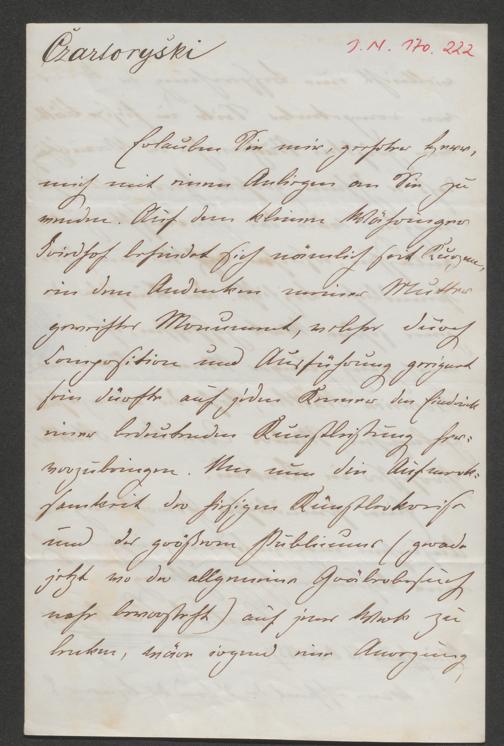 Czartoryski
J. N. 170.222
Erlauben Sie mir, geehrter Herr,
mich mit einem Anliegen an Sie zu
wenden. Auf dem kleinen Währinger
Friedhof befindet sich nämlich seit Kurzem,
ein dem Andenken meiner Mutter
geweihtes Monument, welches durch
Composition und Ausführung geeignet
sein dürfte auf jeden Kenner den Eindruck
einer bedeutenden Kunstleistung her-
vorzubringen. Um nun die Aufmerk-
samkeit der hiesigen Künstlerkreise
und des größern Publicums (gerade
jetzt wo der allgemeine Gräberbesuch
nahe bevorsteht) auf jenes Werk zu
lenken, wäre irgend eine Anregung,